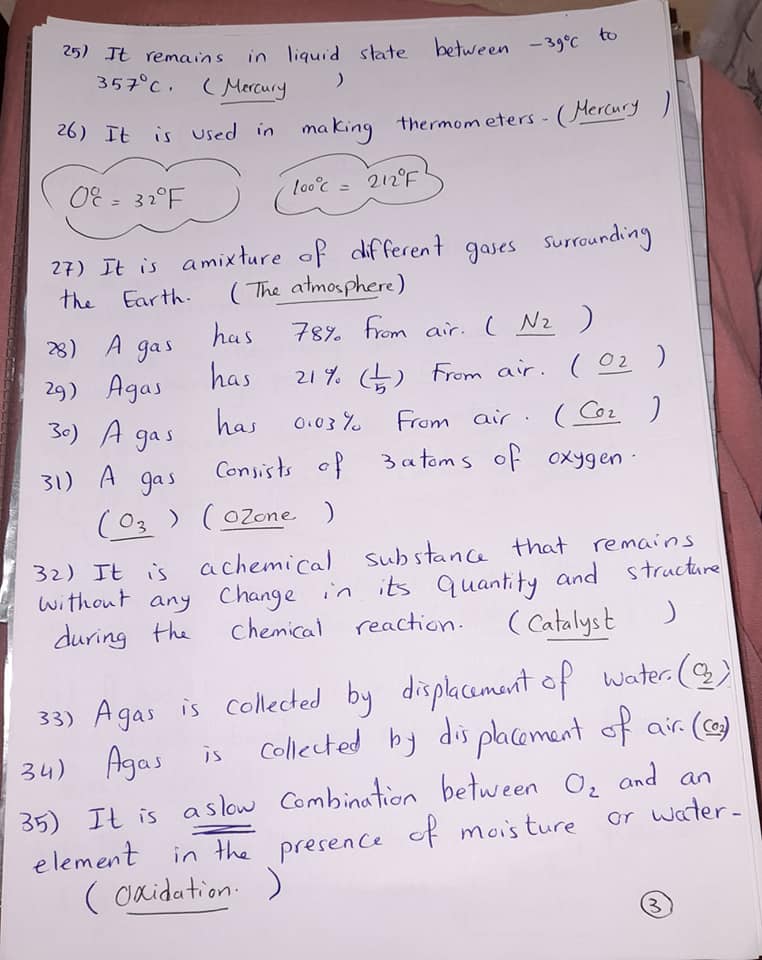 25) It remains in liquid state between -39°C to
357°C. ( Mercury )
26) It is used in making thermometers - ( Mercury )
0°C = 32°F 100°C = 212°F
27) It is amixture of different gases surrounding
the Earth. ( The atmosphere )
28) A gas has 78% from air. ( N2 )
29) Agas has 21% (1/5) From air. ( O2 )
30) A gas has 0.03% From air. ( Co2 )
31) A gas Consists of 3 atoms of oxygen.
( O3 ) ( OZone )
32) It is achemical substance that remains
without any Change in its Quantity and structure
during the Chemical reaction. ( Catalyst )
33) Agas is collected by displacement of water. (O2)
34) Agas is Collected by displacement of air. (CO2)
35) It is aslow Combination between O2 and an
element in the presence of moisture or water-
( Oxidation. )
3